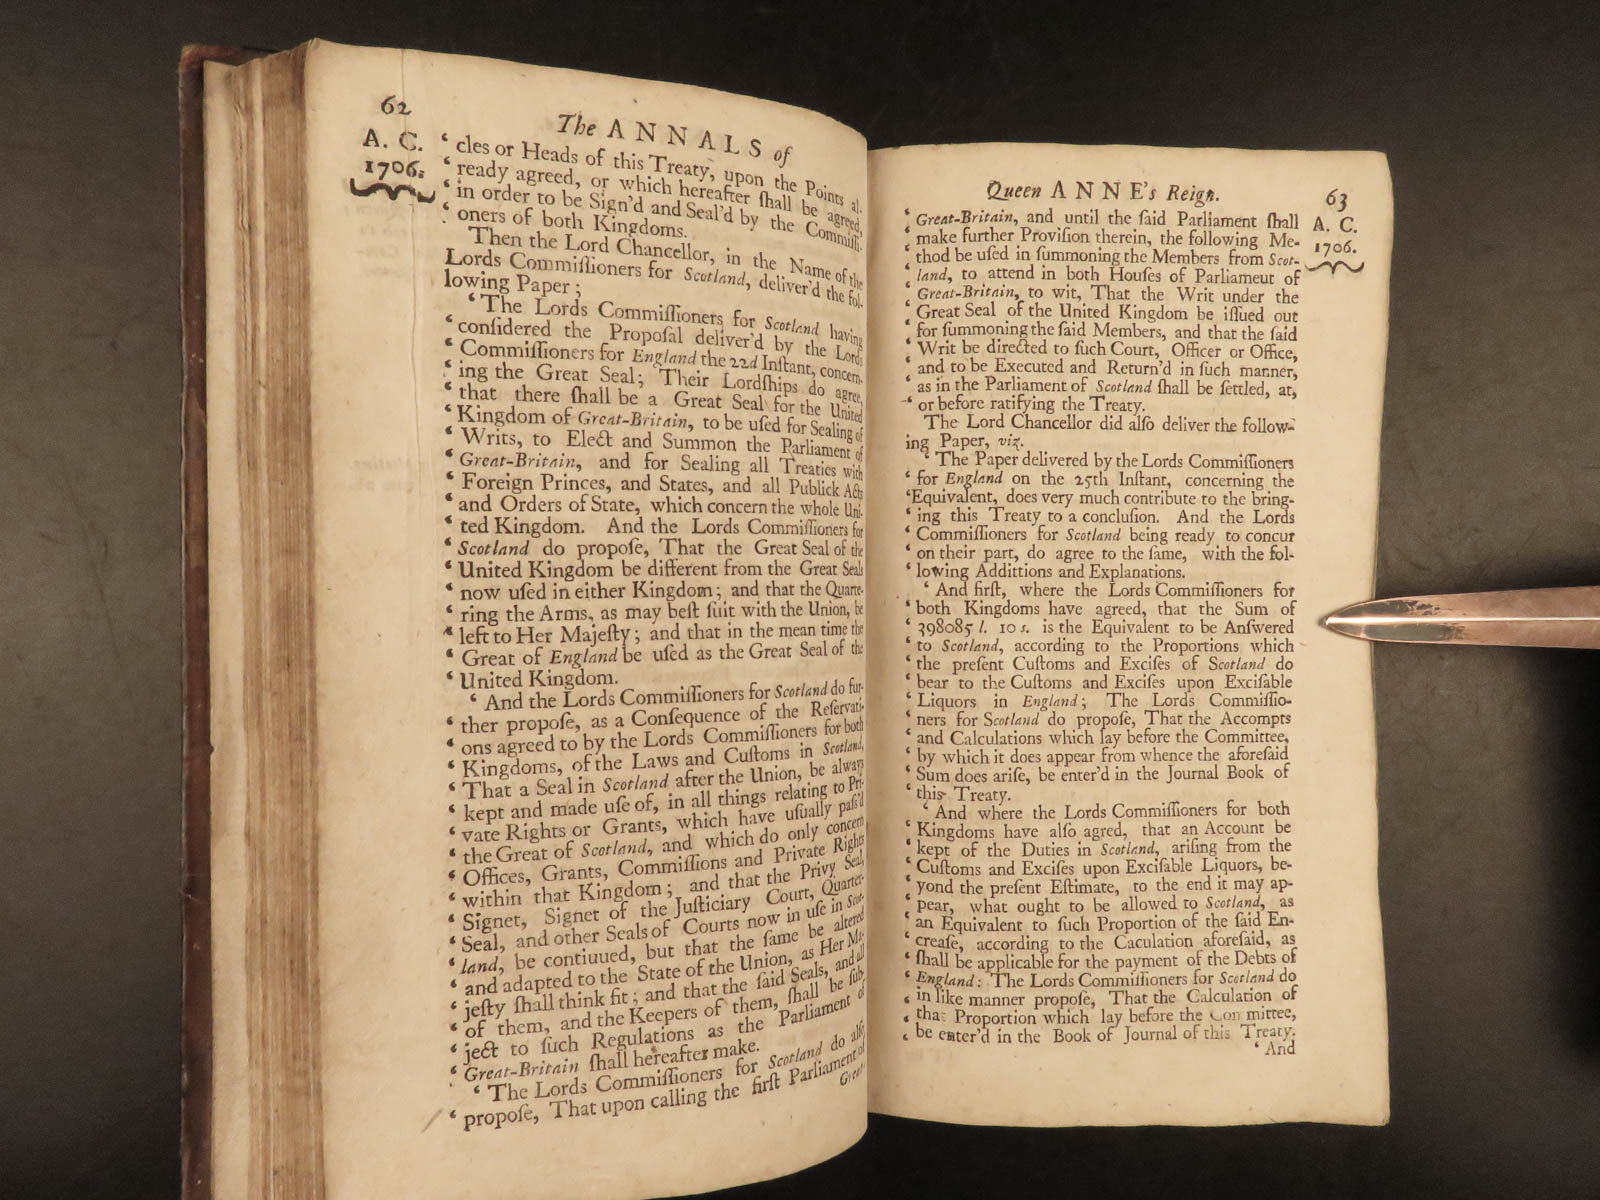 62
The ANNALS of
A. C.
1706.
‘ cles or Heads of this Treaty, upon the Points al-
‘ ready agreed, or which hereafter ſhall be agreed,
‘ in order to be Sign'd and Seal'd by the Commiſſi-
‘ oners of both Kingdoms.
Then the Lord Chancellor, in the Name of the
Lords Commiſſioners for Scotland, deliver'd the fol-
lowing Paper;
‘ The Lords Commiſſioners for Scotland having
‘ conſidered the Propoſal deliver'd by the Lords
‘ Commiſſioners for England the 22d Inſtant, concern-
‘ ing the Great Seal; Their Lordſhips do agree,
‘ that there ſhall be a Great Seal for the United
‘ Kingdom of Great-Britain, to be uſed for Sealing of
‘ Writs, to Elect and Summon the Parliament of
‘ Great-Britain, and for Sealing all Treaties with
‘ Foreign Princes, and States, and all Publick Acts
‘ and Orders of State, which concern the whole Uni-
‘ ted Kingdom. And the Lords Commiſſioners for
‘ Scotland do propoſe, That the Great Seal of the
‘ United Kingdom be different from the Great Seals
‘ now uſed in either Kingdom; and that the Quarte-
‘ ring the Arms, as may beſt ſuit with the Union, be
‘ left to Her Majeſty; and that in the mean time the
‘ Great of England be uſed as the Great Seal of the
‘ United Kingdom.
‘ And the Lords Commiſſioners for Scotland do fur-
‘ ther propoſe, as a Conſequence of the Reſervati-
‘ ons agreed to by the Lords Commiſſioners for both
‘ Kingdoms, of the Laws and Cuſtoms in Scotland,
‘ That a Seal in Scotland after the Union, be always
‘ kept and made uſe of, in all things relating to Pri-
‘ vate Rights or Grants, which have uſually paſs'd
‘ the Great of Scotland, and which do only concern
‘ Offices, Grants, Commiſſions and Private Rights
‘ within that Kingdom; and that the Privy Seal,
‘ Signet, Signet of the Juſticiary Court, Quarter-
‘ Seal, and other Seals of Courts now in uſe in Scot-
‘ land, be contiuued, but that the ſame be altered
‘ and adapted to the State of the Union, as Her Ma-
‘ jeſty ſhall think fit; and that the ſaid Seals, and all
‘ of them, and the Keepers of them, ſhall be ſub-
‘ ject to ſuch Regulations as the Parliament of
‘ Great-Britain ſhall hereafter make.
‘ The Lords Commiſſioners for Scotland do alſo
‘ propoſe, That upon calling the firſt Parliament of
Great-
Queen ANNE's Reign.
63
A. C.
1706.
‘ Great-Britain, and until the ſaid Parliament ſhall
‘ make further Proviſion therein, the following Me-
‘ thod be uſed in ſummoning the Members from Scot-
‘ land, to attend in both Houſes of Parliameut of
‘ Great-Britain, to wit, That the Writ under the
‘ Great Seal of the United Kingdom be iſſued out
‘ for ſummoning the ſaid Members, and that the ſaid
‘ Writ be directed to ſuch Court, Officer or Office,
‘ and to be Executed and Return'd in ſuch manner,
‘ as in the Parliament of Scotland ſhall be ſettled, at,
‘ or before ratifying the Treaty.
The Lord Chancellor did alſo deliver the follow-
ing Paper, viz.
‘ The Paper delivered by the Lords Commiſſioners
‘ for England on the 25th Inſtant, concerning the
‘ Equivalent, does very much contribute to the bring-
‘ ing this Treaty to a concluſion. And the Lords
‘ Commiſſioners for Scotland being ready to concur
‘ on their part, do agree to the ſame, with the fol-
‘ lowing Addittions and Explanations.
‘ And firſt, where the Lords Commiſſioners for
‘ both Kingdoms have agreed, that the Sum of
‘ 398085 l. 10 s. is the Equivalent to be Anſwered
‘ to Scotland, according to the Proportions which
‘ the preſent Cuſtoms and Exciſes of Scotland do
‘ bear to the Cuſtoms and Exciſes upon Exciſable
‘ Liquors in England; The Lords Commiſſio-
‘ ners for Scotland do propoſe, That the Accompts
‘ and Calculations which lay before the Committee,
‘ by which it does appear from whence the aforeſaid
‘ Sum does ariſe, be enter'd in the Journal Book of
‘ this Treaty.
‘ And where the Lords Commiſſioners for both
‘ Kingdoms have alſo agred, that an Account be
‘ kept of the Duties in Scotland, ariſing from the
‘ Cuſtoms and Exciſes upon Exciſable Liquors, be-
‘ yond the preſent Eſtimate, to the end it may ap-
‘ pear, what ought to be allowed to Scotland, as
‘ an Equivalent to ſuch Proportion of the ſaid En-
‘ creaſe, according to the Caculation aforeſaid, as
‘ ſhall be applicable for the payment of the Debts of
‘ England: The Lords Commiſſioners for Scotland do
‘ in like manner propoſe, That the Calculation of
‘ that Proportion which lay before the Committee,
‘ be enter'd in the Book of Journal of this Treaty.
‘ And